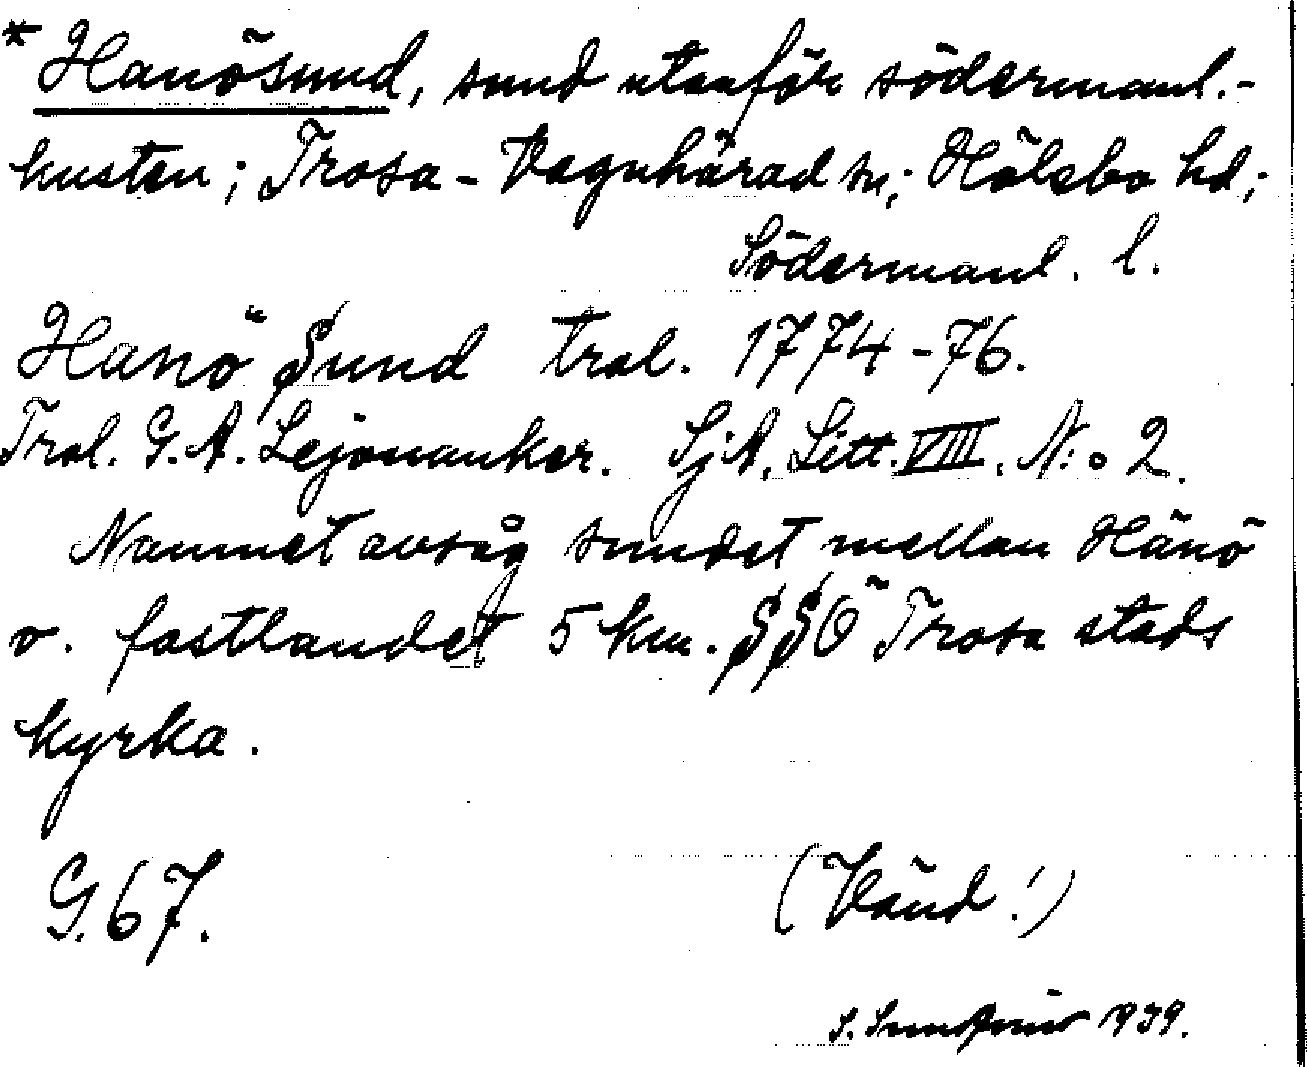 * Hanösund, sund utanför södermanl.-
kusten; Trosa-Vagnhärad sn; Hölebo hd;
Södermanl. l.
Hanö Sund tral. 1774-76.
Tral. G.A. Lejonanker. SjA, Litt. VIII, N:o 2.
Namnet avsåg sundet mellan Hänö
o. fastlandet 5 km. SSÖ Trosa stads
kyrka.
G. 67.
(Vänd!)
S. 1939.